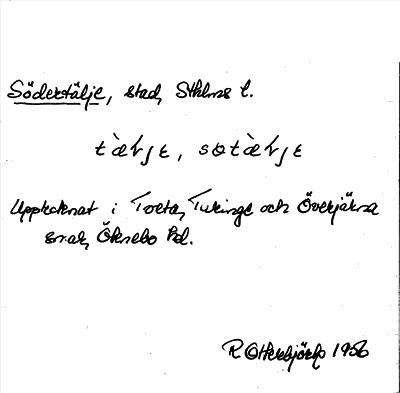 Södertälje, stad, Sthlms l.
tæ̀ljɛ, sɵtæ̀ljɛ
Upptecknat i Torta, Turinge och Överjärna
snar, Öknebo hd.
R Otterbjörk 1956